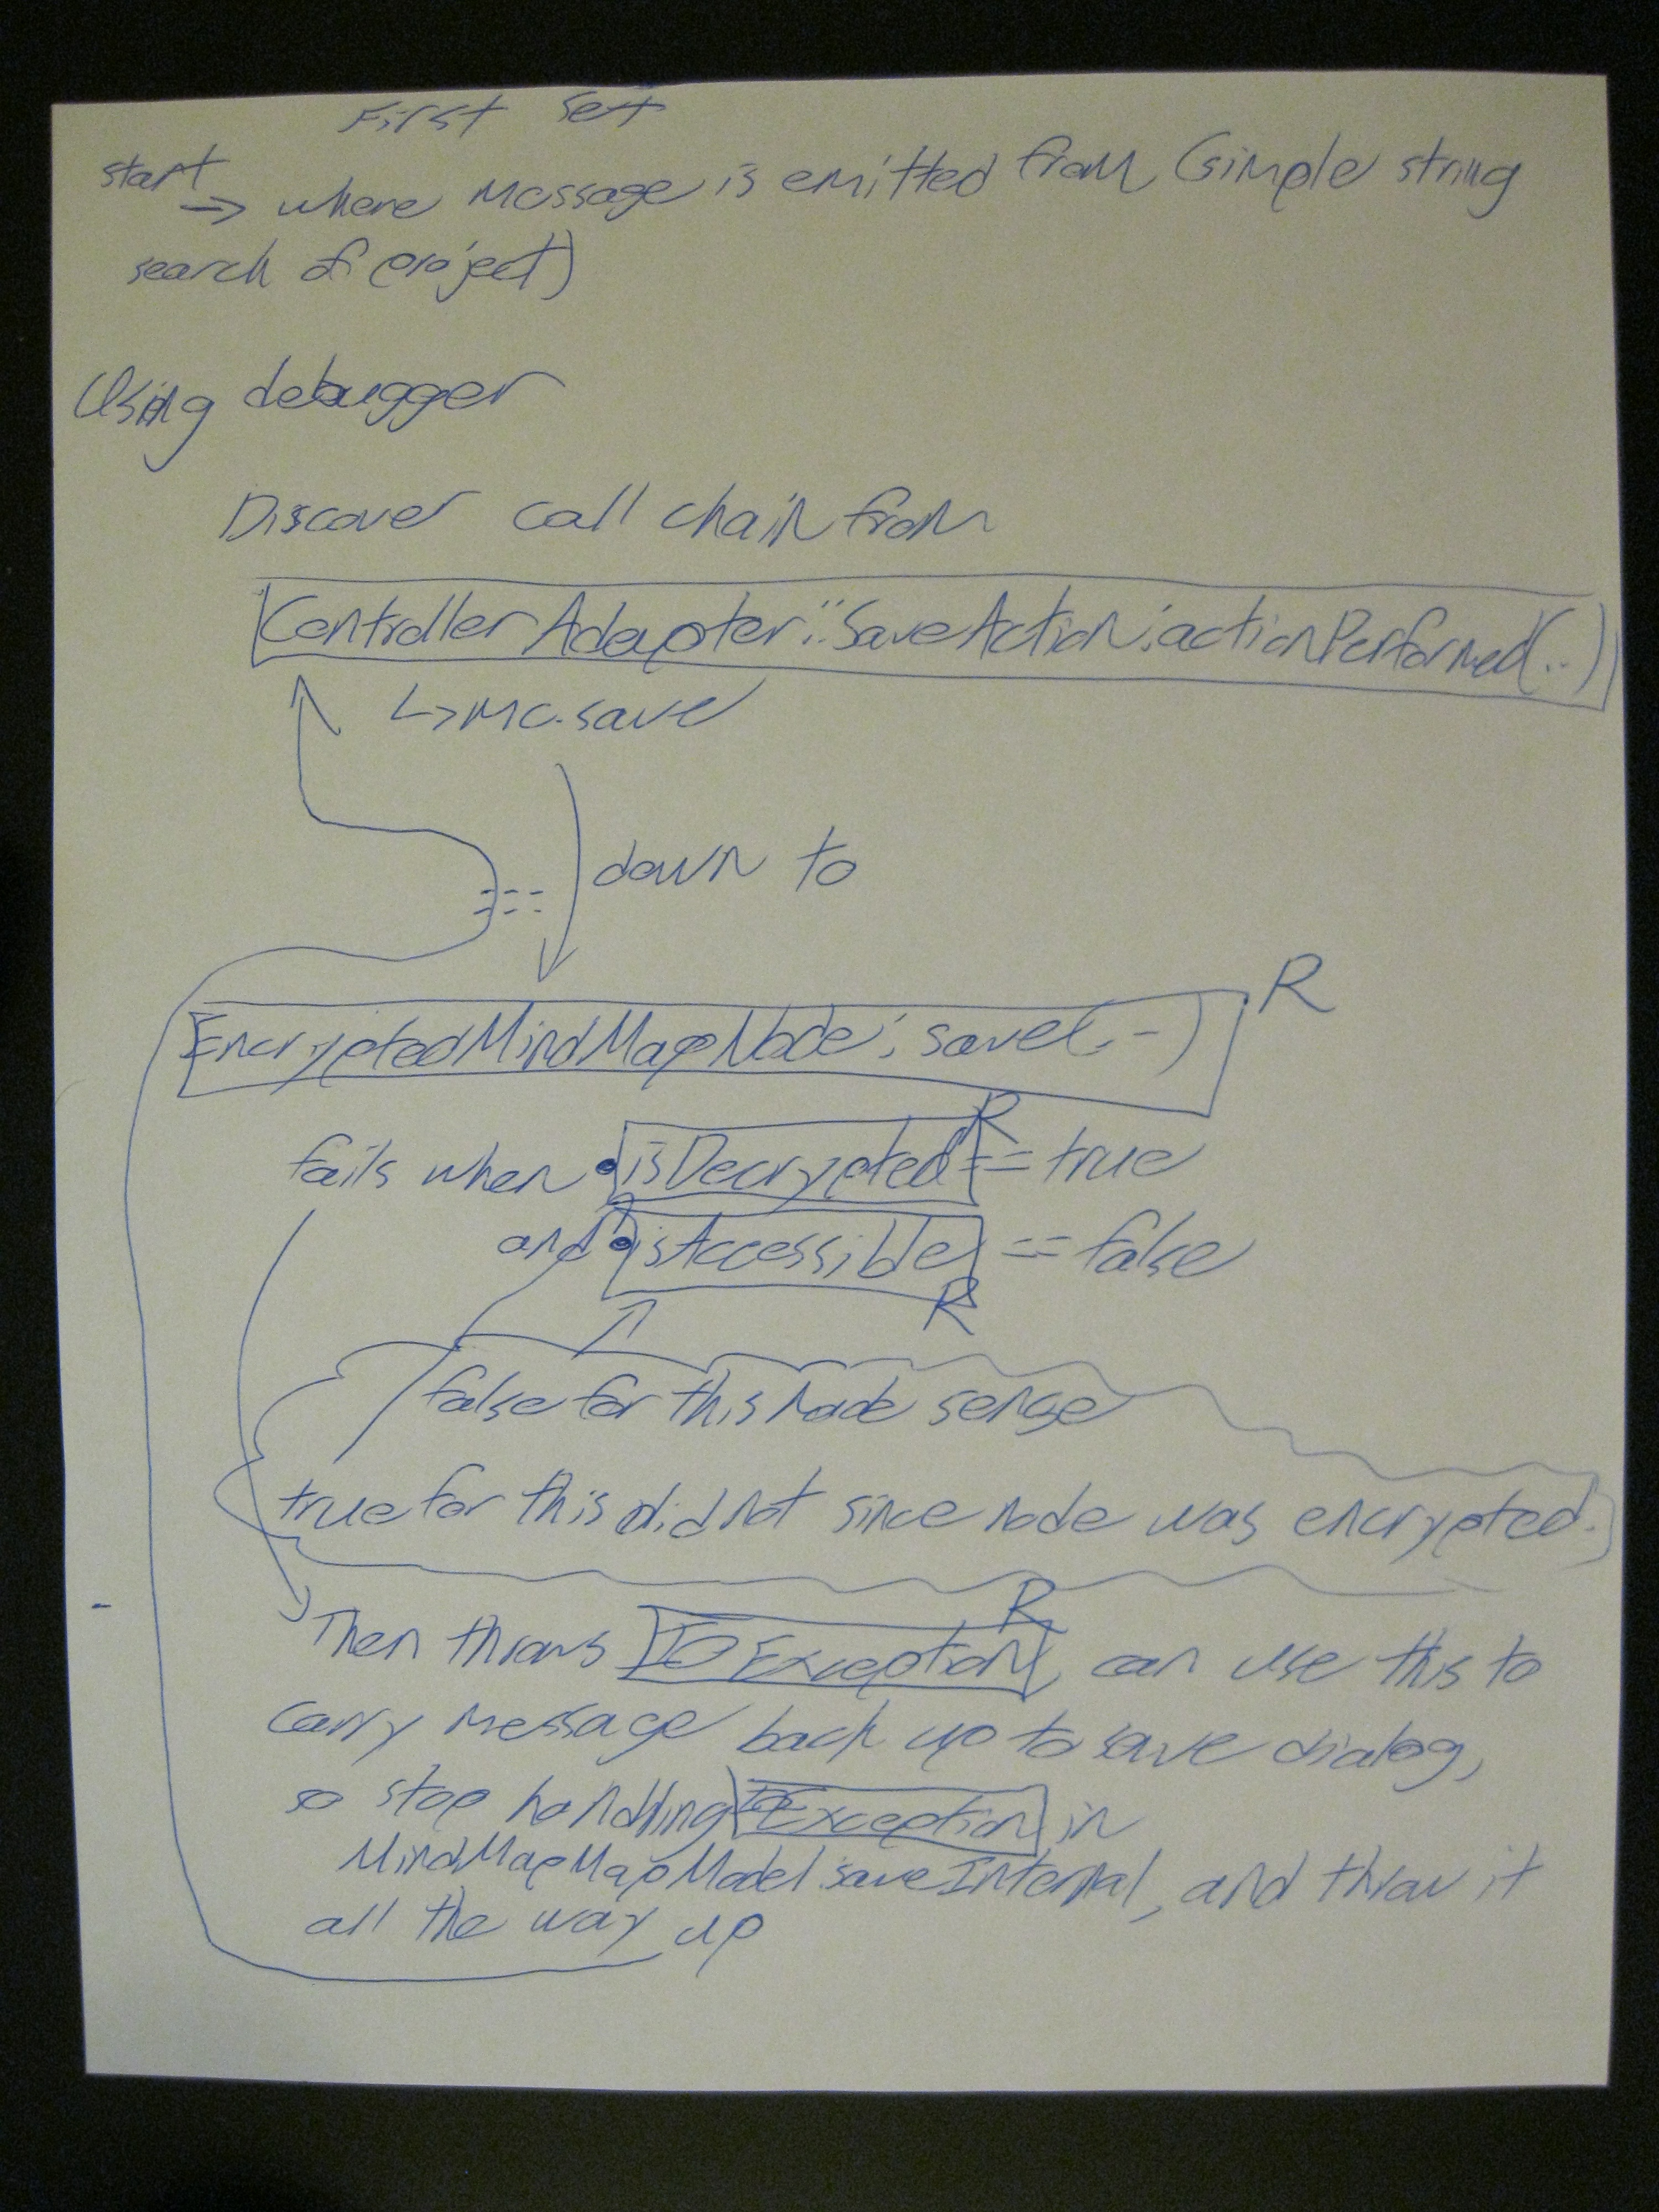 First set
start
→ where message is emitted from (simple string
search of project)
Using debugger
Discover call chain from
ControllerAdapter::SaveAction:actionPerformed(..)
↳mc.save
down to
R
EncryptedMindMapNode:save(.-)
R
fails when •isDecrypted == true
and •isAccessible == false
R
false for this made sense
true for this did not since node was encrypted.
R
Then throws IOException, can use this to
carry message back up to save dialog,
so stop handling IOException in
MindMapMapModel.saveInternal, and throw it
all the way up